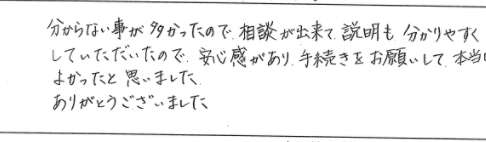 分からない事が多かったので、相談が出来て、説明も分かりやすく
していただいたので、安心感があり、手続きをお願いして、本当
よかったと思いました
ありがとうございました